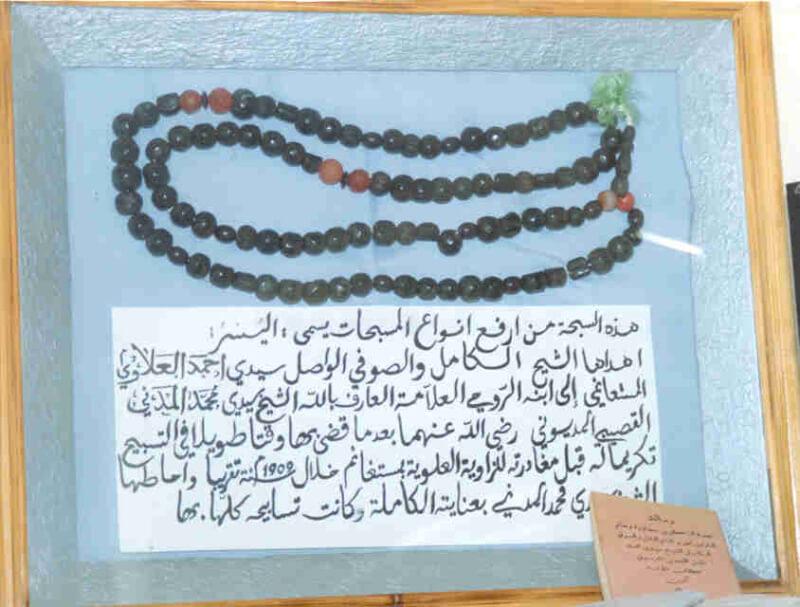 هذه السبحة من ارفع انواع المسبحات يسمى: اليسر:
اهداها الشيخ الكامل والصوفي الواصل سيدي احمد العلاوي
المستغانمي إلى ابنه الروحي العلامة العارف بالله الشيخ سيدي محمد المدني
القصيبي المديوني رضي الله عنهما بعدما قضى بها وقتا طويلا في التسبيح
تكريما له قبل مغادرته للزاوية العلوية بمستغانم خلال سنة 1909 تقريبا واحاطها
الشيخ سيدي محمد المدني بعنايته الكاملة وكانت تسابيحه كلها بها